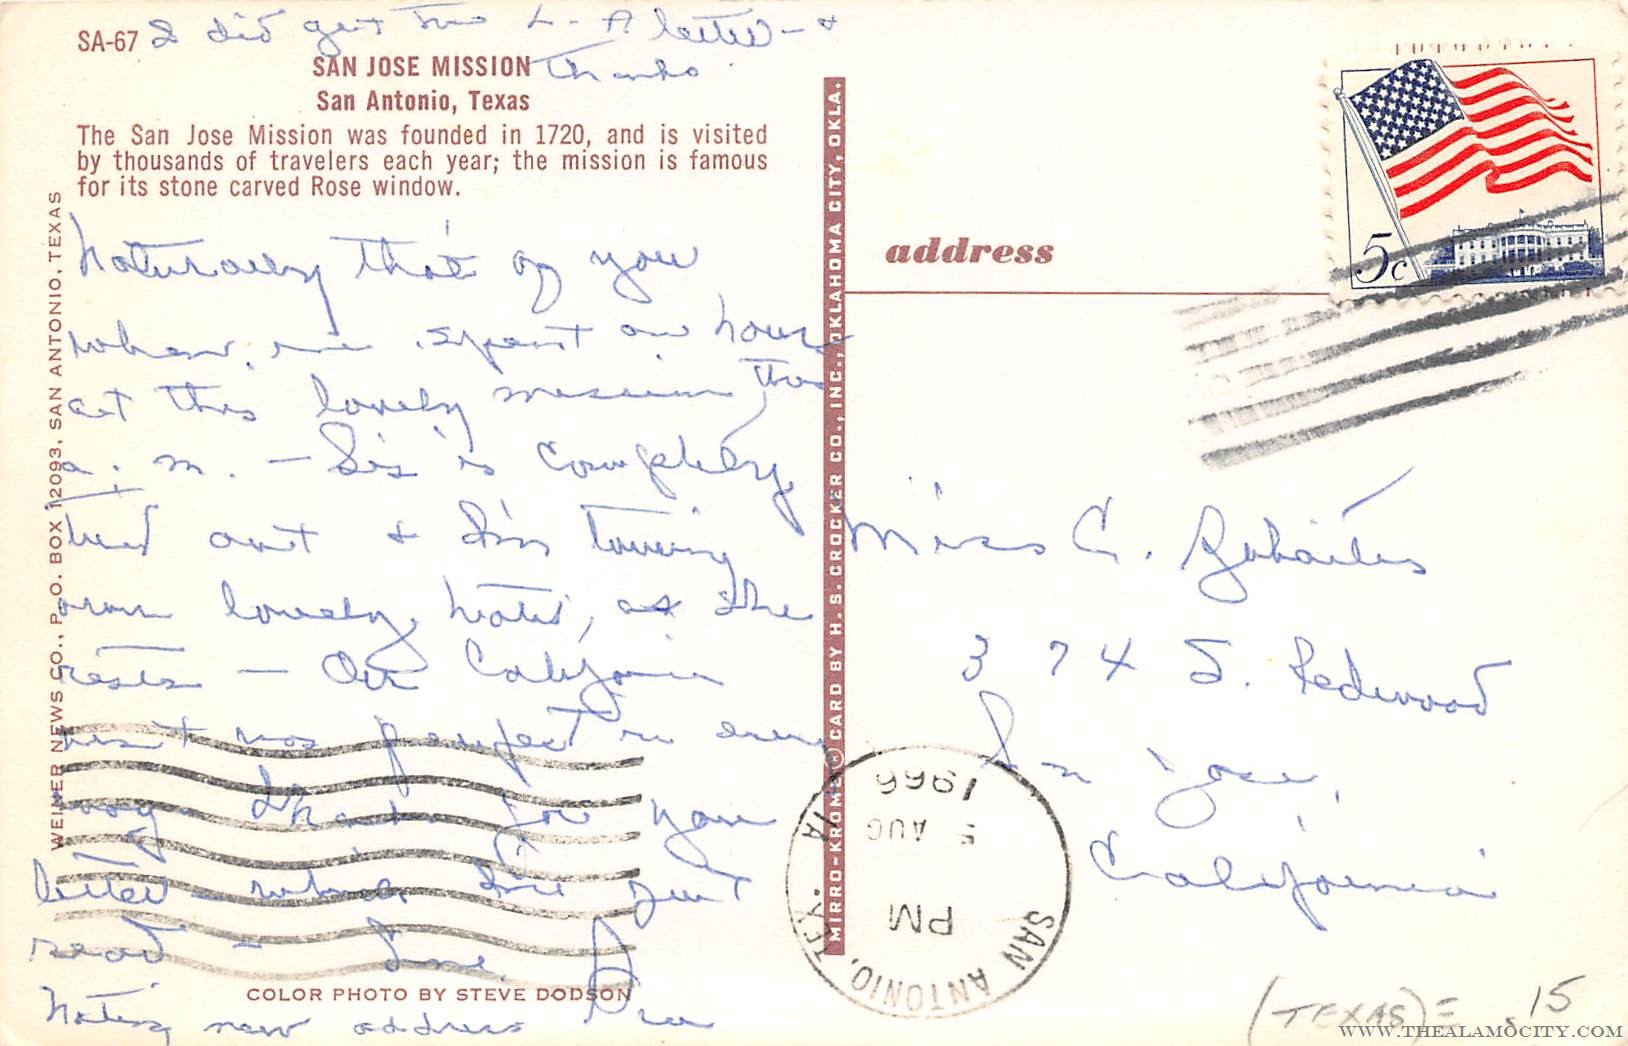 SA-67 I did get the L-A letter - &
Thanks
SAN JOSE MISSION
San Antonio, Texas
The San Jose Mission was founded in 1720, and is visited
by thousands of travelers each year; the mission is famous
for its stone carved Rose window.
Naturally that of you
when we spent an hour
at this lovely mission this
a.m. - Sis is completely
tired out & I'm touring
our lovely hotel, as she
rests - Our California
visit was perfect in every
way Thanks for your
letter which I've just
read - Love,
Noting new address
COLOR PHOTO BY STEVE DODSON
WEINER NEWS CO., P.O. BOX 12093, SAN ANTONIO, TEXAS
MIRRO-KROME ® CARD BY H. S. CROCKER CO., INC., OKLAHOMA CITY, OKLA.
address
5c
Miss C.
374 S. Redwood
San Jose,
California
SAN ANTONIO, TEX.
PM
5 AUG
1966
(TEXAS) = .15
WWW.THEALAMOCITY.COM